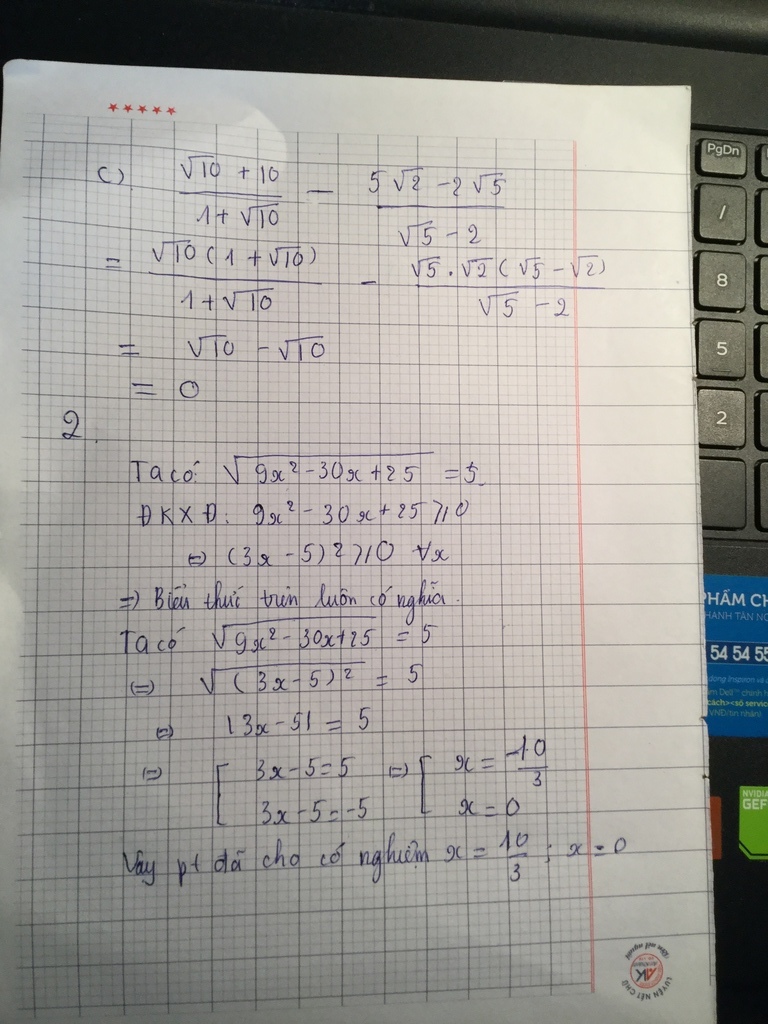 ★★★★★
c) (√10 + 10)/(1 + √10) − (5√2 − 2√5)/(√5 − 2)
= √10(1 + √10)/(1 + √10) − √5.√2(√5 − √2)/(√5 − 2)
= √10 − √10
= 0
2.
Ta có: √(9x² − 30x + 25) = 5
ĐKXĐ: 9x² − 30x + 25 ≥ 0
⇔ (3x − 5)² ≥ 0 ∀x
⇒ Biểu thức trên luôn có nghĩa.
Ta có √(9x² − 30x + 25) = 5
⇔ √((3x − 5)²) = 5
⇔ |3x − 5| = 5
⇔ [ 3x − 5 = 5 ⇔ [ x = 10/3
3x − 5 = −5 x = 0
Vậy pt đã cho có nghiệm x = 10/3 ; x = 0
LUYỆN NÉT CHỮ
AK
PgDn
/
8
5
2
PHẨM CH
54 54 55
NVIDIA
GEF